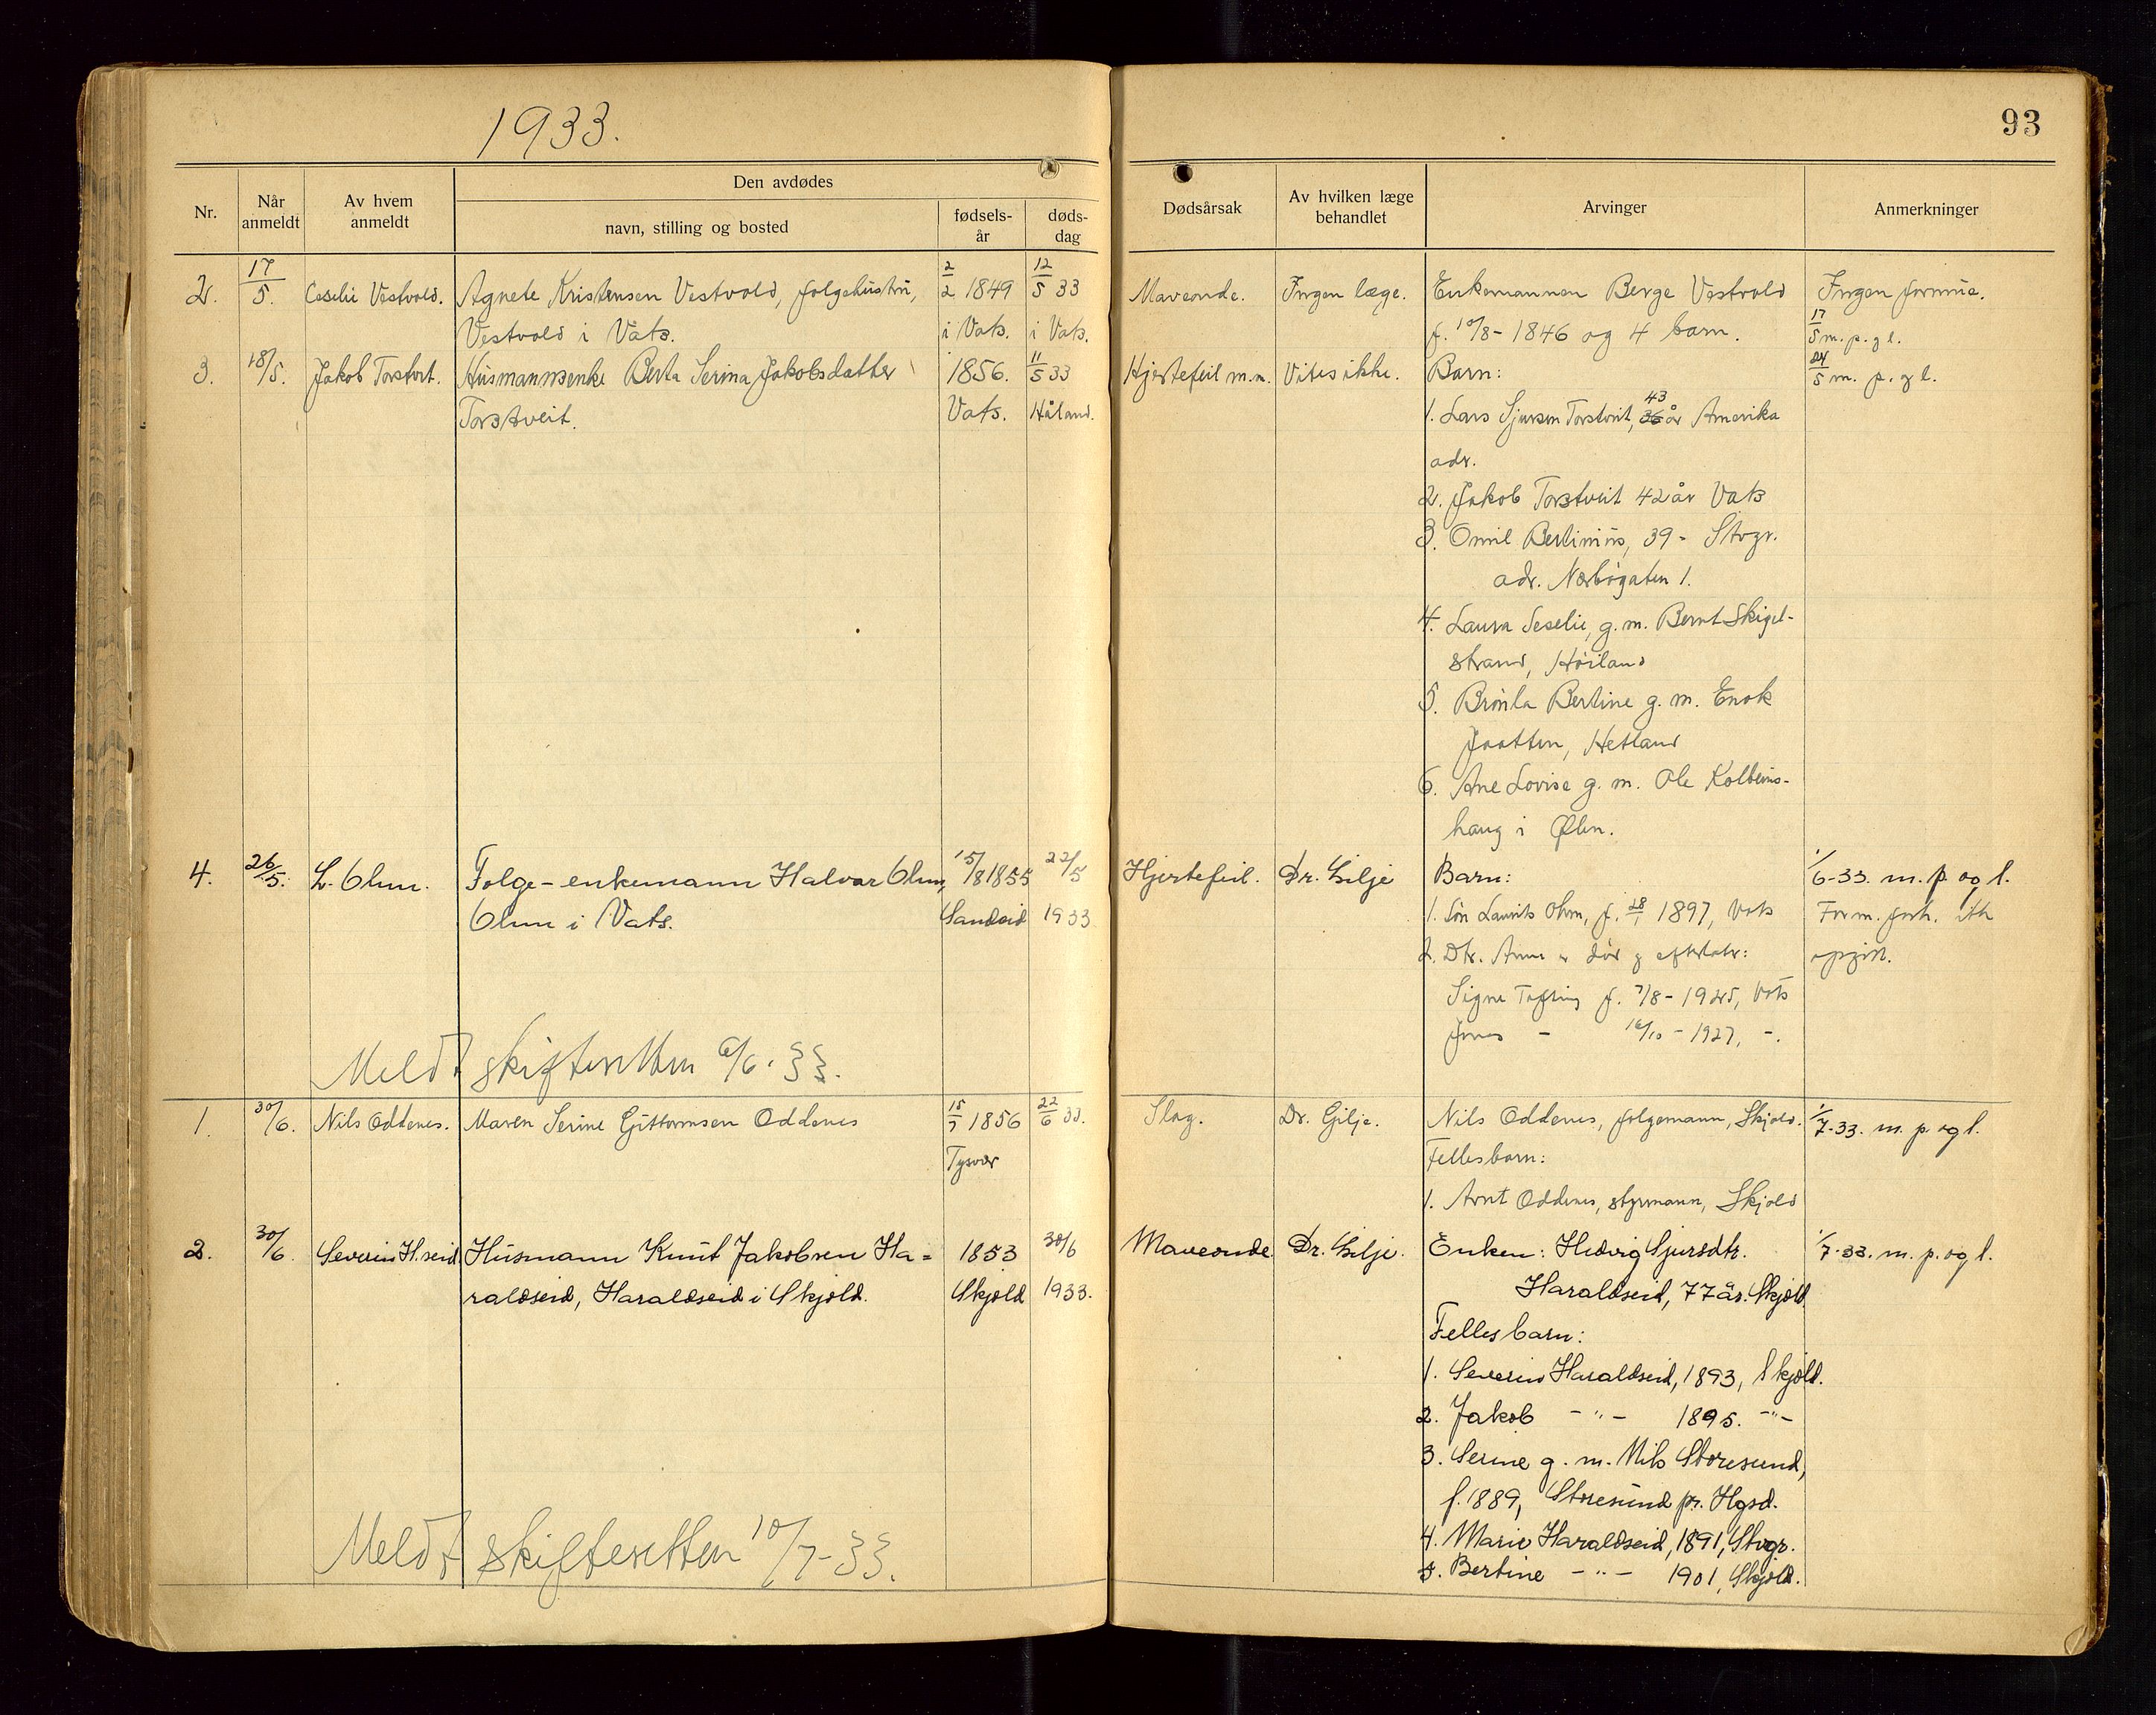 1933.
93
Nr.
Når anmeldt
Av hvem anmeldt
Den avdødes
navn, stilling og bosted
fødsels-år
døds-dag
Dødsårsak
Av hvilken læge behandlet
Arvinger
Anmerkninger
2. 17/5. Ceselie Vestvold. Agnete Kristensen Vestvold, folgehustru, 2/2 1849 12/5 33 Maveonde. Ingen læge. Enkemannen Berge Vestvold Ingen formue.
Vestvold i Vats. i Vats. i Vats. f. 10/8-1846 og 4 barn. 17/5 m. p. og l.
3. 18/5. Jakob Torstveit. Husmannsenke Berta Serina Jakobsdatter 1856. 11/5 33 Hjertefeil m.m. Vites ikke. Barn: 24/5 m. p. og l.
Torstveit. Vats. Håland. 1. Lars Sjursen Torstveit, 36 43 år Amerika
adr.
2. Jakob Torstveit 42 år Vats
3. Omil Bertinius, 39 - Stvgr.
adr. Nærbøgaten 1.
4. Laura Seselie, g. m. Bernt Skigel-
strand, Høiland
5. Brønla Bertine g. m. Enok
Jaatten, Hetland
6. Ane Lovise g. m. Ole Kolbeins-
haug i Ølen.
4. 26/5. L. Ohm. Folge-enkemann Halvar Ohm, 15/8 1855 22/5 Hjertefeil. Dr. Gilje Barn: 1/6-33. m. p. og l.
Ohm i Vats. Sandeid 1933 1. Søn Laurits Ohm, f. 28/1 1897, Vats Form. forh. ikke
2. Dtr. Anna er død og efterlater: opgitt.
Signe f. 7/8-1925, Vats
Jonas - 16/10-1927, -.
Meldt skifteretten 6/6. 33.
1. 30/6. Nils Oddenes. Maren Serine Guttormsen Oddenes 15/7 1856 22/6 33. Slag. Dr. Gilje. Nils Oddenes, folgemann, Skjold. 1/7-33. m. p. og l.
Tysvær Fellesbarn:
1. Arnt Oddenes, styrmann, Skjold
2. 30/6. Severin H.seid Husmann Knut Jakobsen Ha= 1853 30/6 Maveonde Dr. Gilje. Enken: Hedvig Sjursdtr. 1/7-33. m. p. og l.
raldseid, Haraldseid i Skjold. Skjold 1933. Haraldseid, 77 år. Skjold
Felles barn:
1. Severin Haraldseid, 1893, Skjold.
2. Jakob -"- 1895. -"-
3. Serine g. m. Nils Storesund,
f. 1889, Storesund pr. Hgsd.
4. Marie Haraldseid, 1891, Stvgr.
5. Bertine -"- 1901, Skjold.
Meldt skifteretten 10/7-33.